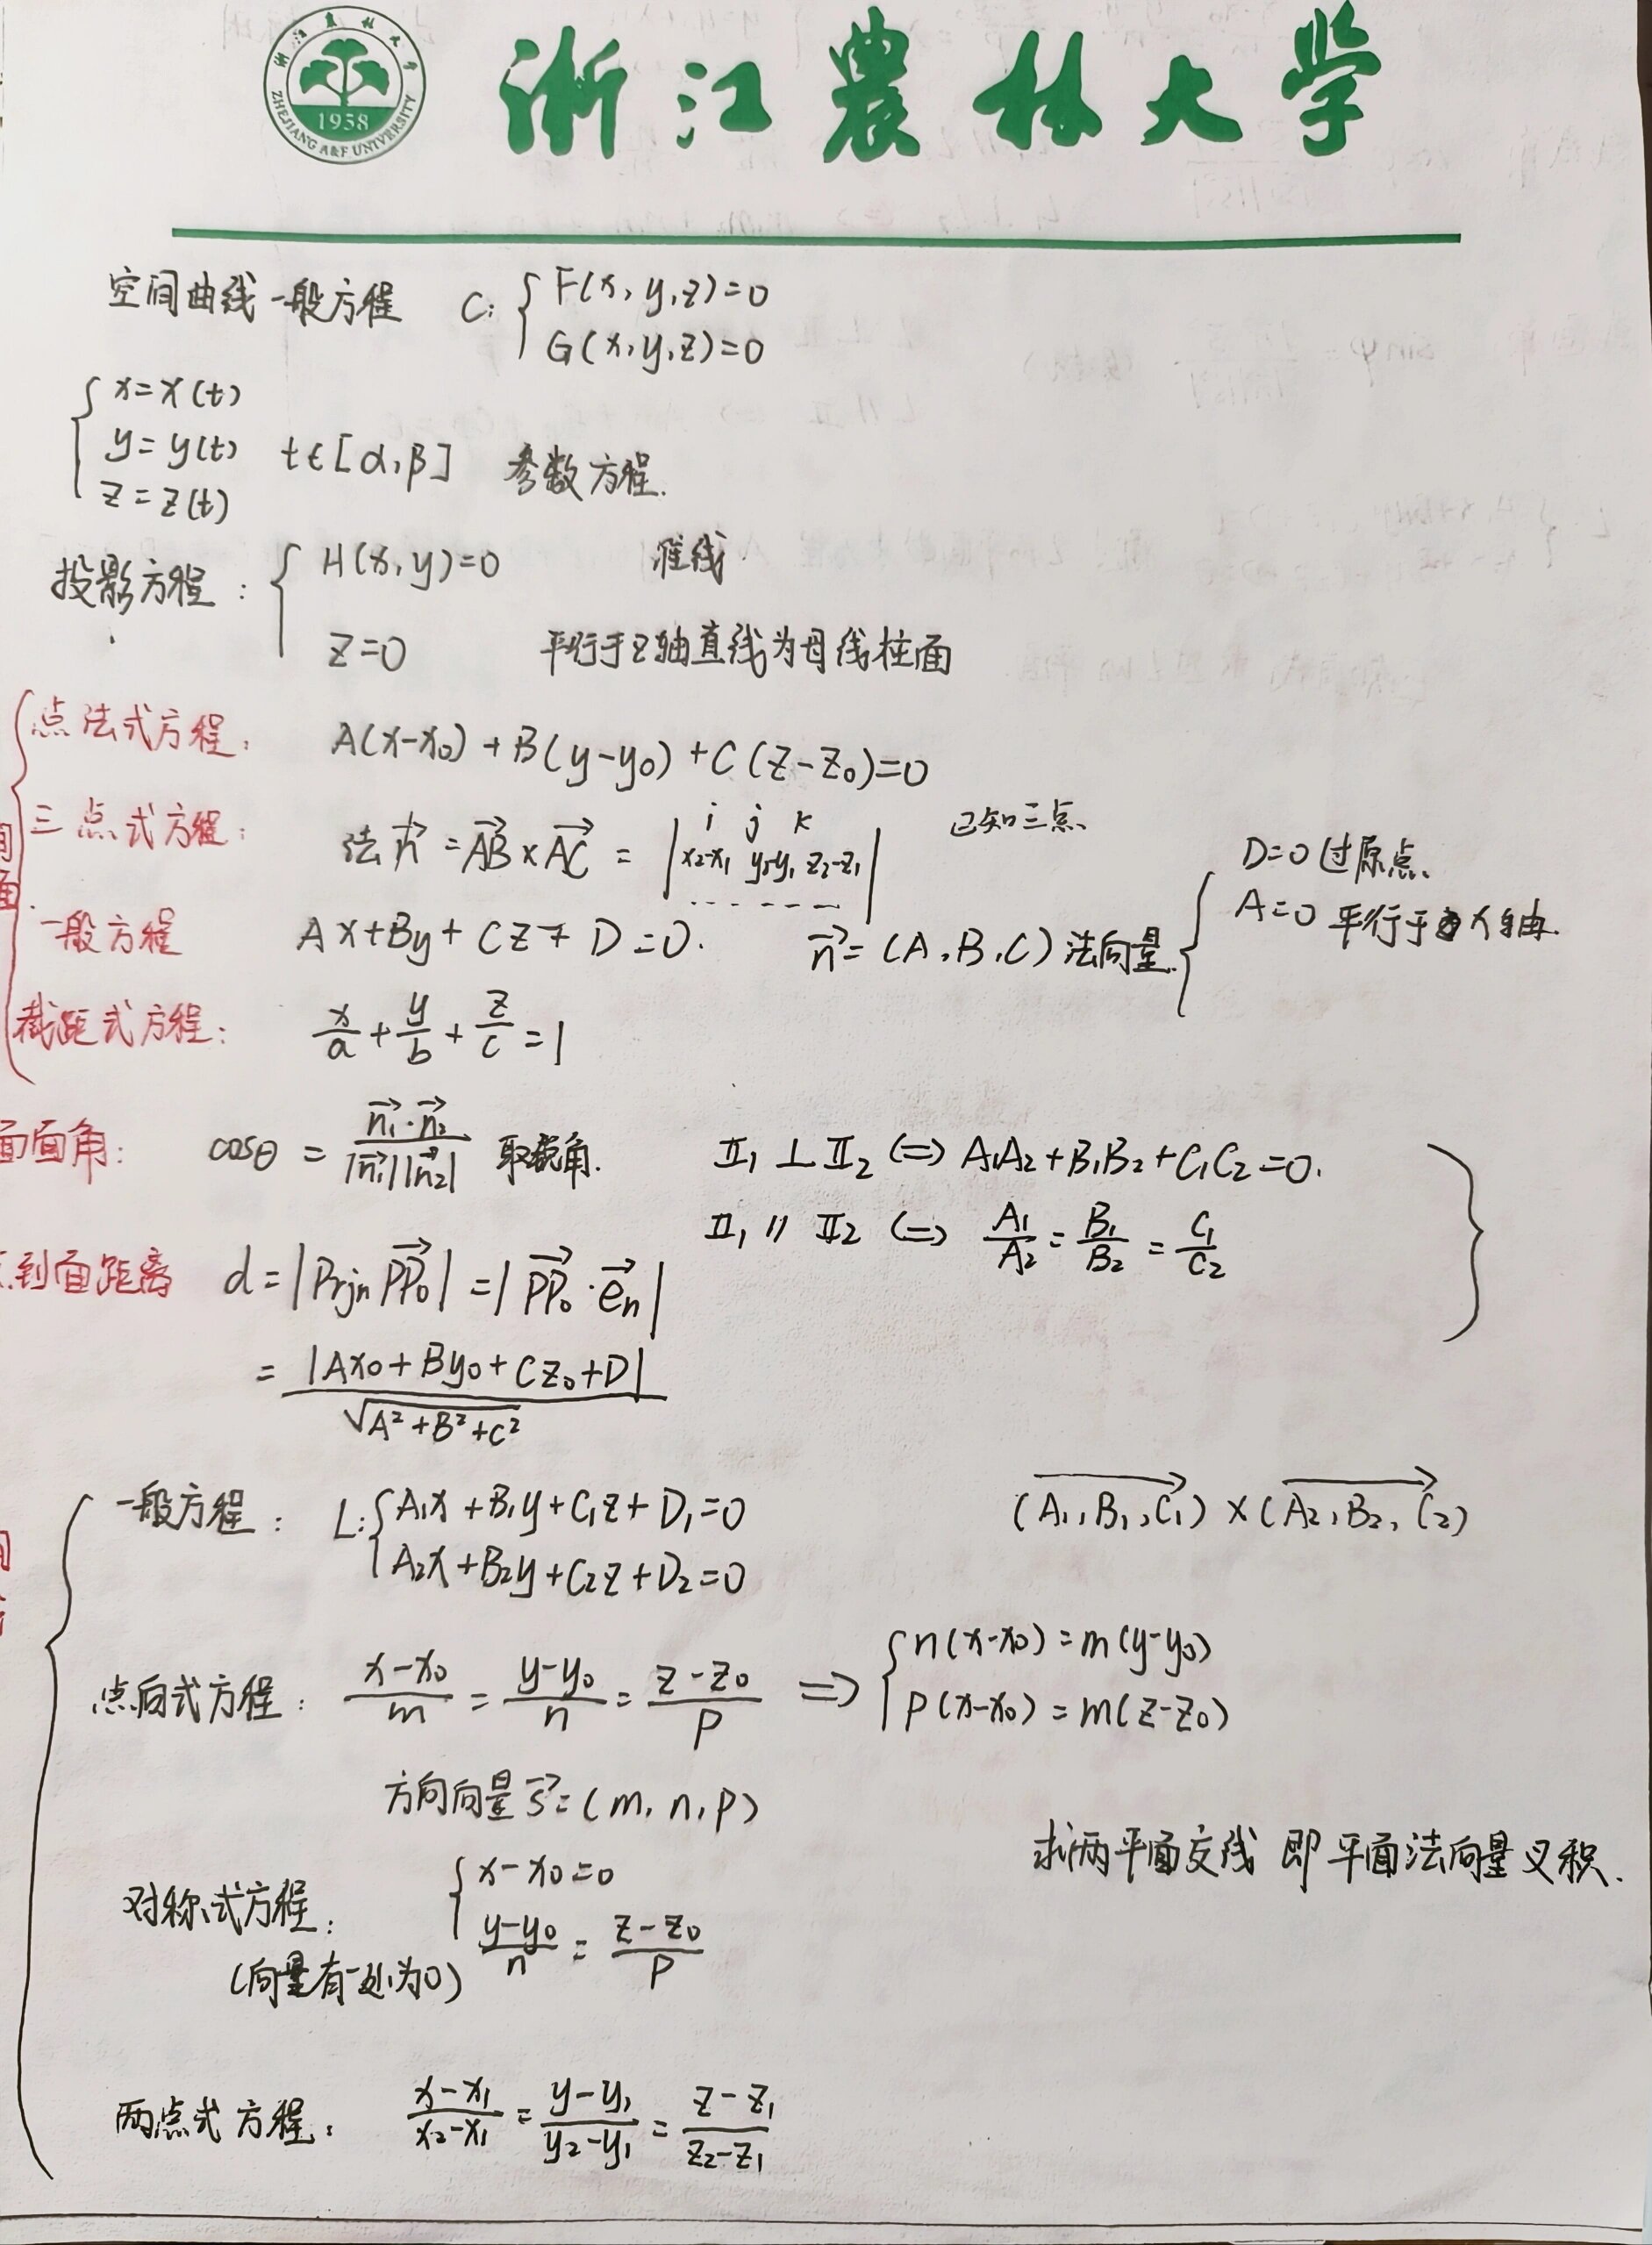 浙江农林大学
ZHEJIANG A&F UNIVERSITY
1958
浙江農林大学
空间曲线一般方程 C: { F(x, y, z)=0
G(x, y, z)=0
{ x=x(t)
y=y(t) t∈[α, β] 参数方程.
z=z(t)
投影方程: { H(x, y)=0 准线
z=0 平行于z轴直线为母线柱面
点法式方程: A(x-x₀)+B(y-y₀)+C(z-z₀)=0
三点式方程: 法n⃗ = AB⃗ × AC⃗ = | i j k
x₂-x₁ y₂-y₁ z₂-z₁ | 已知三点
------
一般方程 Ax+By+Cz+D=0. n⃗=(A, B, C) 法向量 { D=0 过原点
A=0 平行于x轴.
截距式方程: x/a + y/b + z/c = 1
面面角: cosθ = n₁⃗·n₂⃗ / |n₁⃗||n₂⃗| 取锐角. Π₁⊥Π₂ ⇔ A₁A₂+B₁B₂+C₁C₂=0.
Π₁∥Π₂ ⇔ A₁/A₂ = B₁/B₂ = C₁/C₂
到面距离 d=|Prjn PP₀⃗| = |PP₀⃗·eₙ⃗|
= |Ax₀+By₀+Cz₀+D| / √A²+B²+C²
一般方程: L: { A₁x+B₁y+C₁z+D₁=0 (A₁, B₁, C₁)×(A₂, B₂, C₂)
A₂x+B₂y+C₂z+D₂=0
点向式方程: x-x₀/m = y-y₀/n = z-z₀/p ⇒ { n(x-x₀)=m(y-y₀)
p(x-x₀)=m(z-z₀)
方向向量 s⃗=(m, n, p)
求两平面交线 即平面法向量叉积.
对称式方程: { x-x₀=0
(向量有一处为0) y-y₀/n = z-z₀/p
两点式方程: x-x₁/x₂-x₁ = y-y₁/y₂-y₁ = z-z₁/z₂-z₁